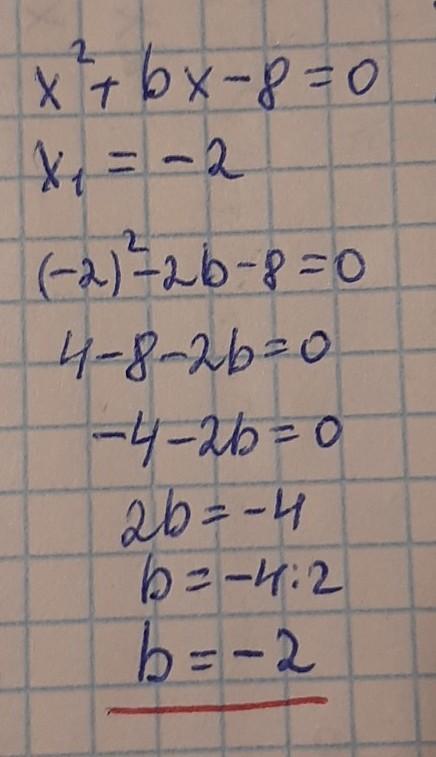 x² + bx - 8 = 0
x₁ = -2
(-2)² - 2b - 8 = 0
4 - 8 - 2b = 0
-4 - 2b = 0
2b = -4
b = -4 : 2
b = -2